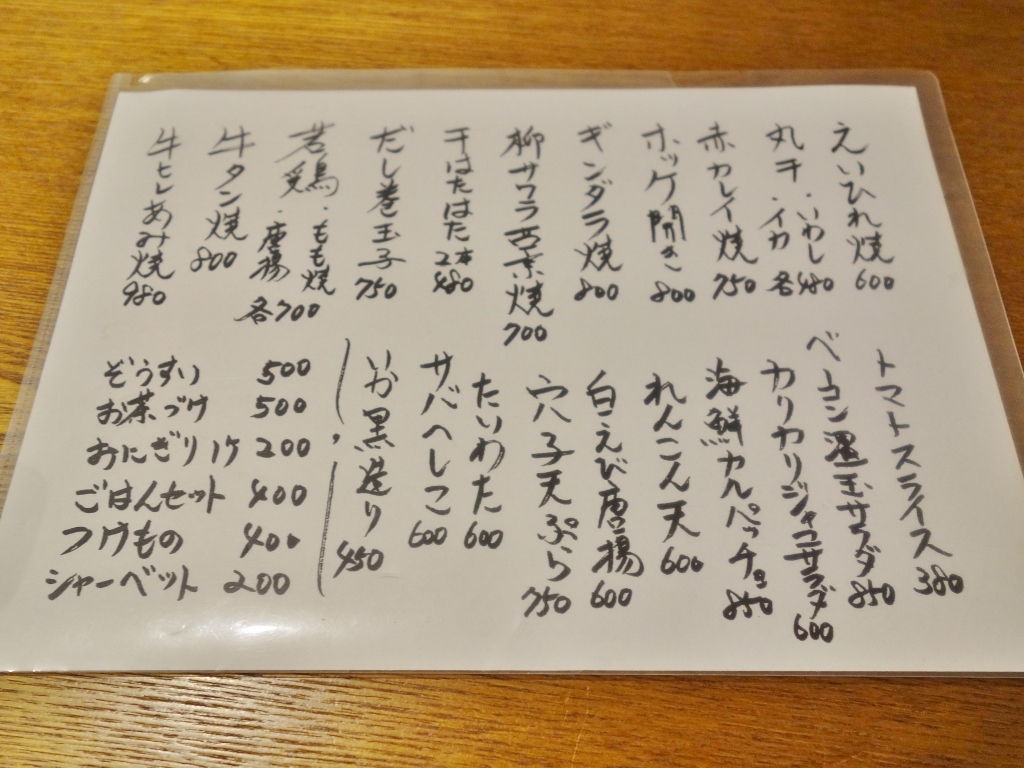 えいひれ焼 600
丸干・いわし
・イカ 各480
赤カレイ焼 750
ホッケ開き 800
ギンダラ焼 800
柳サワラ西京焼 700
干はたはた 2本 480
だし巻玉子 750
若鶏・もも焼
・唐揚 各700
牛タン焼 800
牛ヒレあみ焼 980
トマトスライス 380
ベーコン温玉サラダ 850
カリカリジャコサラダ 600
海鮮カルパッチョ 850
れんこん天 600
白えび唐揚 600
穴子天ぷら 750
たいわた 600
サバへしこ 600
いか黒造り 450
ぞうすい 500
お茶づけ 500
おにぎり 1ケ 200
ごはんセット 400
つけもの 400
シャーベット 200